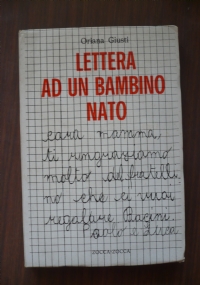 Oriana Giusti
LETTERA
AD UN BAMBINO
NATO
cara mamma,
ti ringraziamo
molto del fratelli
no che ci vuoi
regalare Bacini.
Paolo e Luca
ZOCCA-ZOCCA